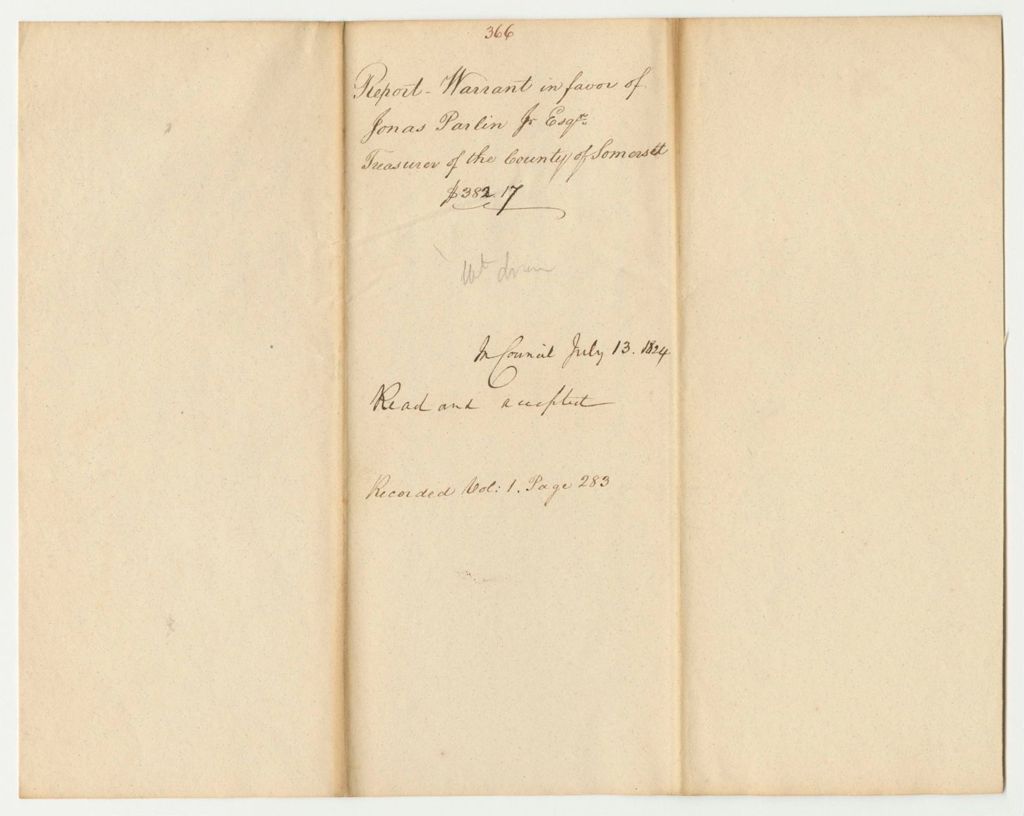 366
Report - Warrant in favor of
Jonas Parlin Jr Esqre.
Treasurer of the County of Somersett
$382.17
In Council July 13. 1824
Read and accepted
Recorded Vol: 1. Page 283